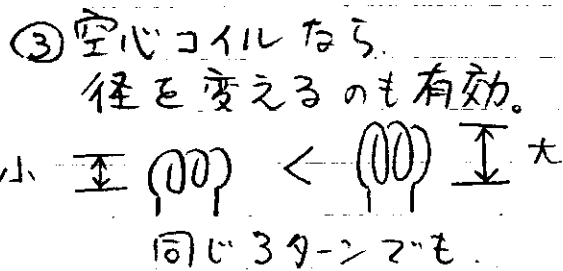 ③空心コイルなら、
径を変えるのも有効。
小 < 大
同じ3ターンでも.